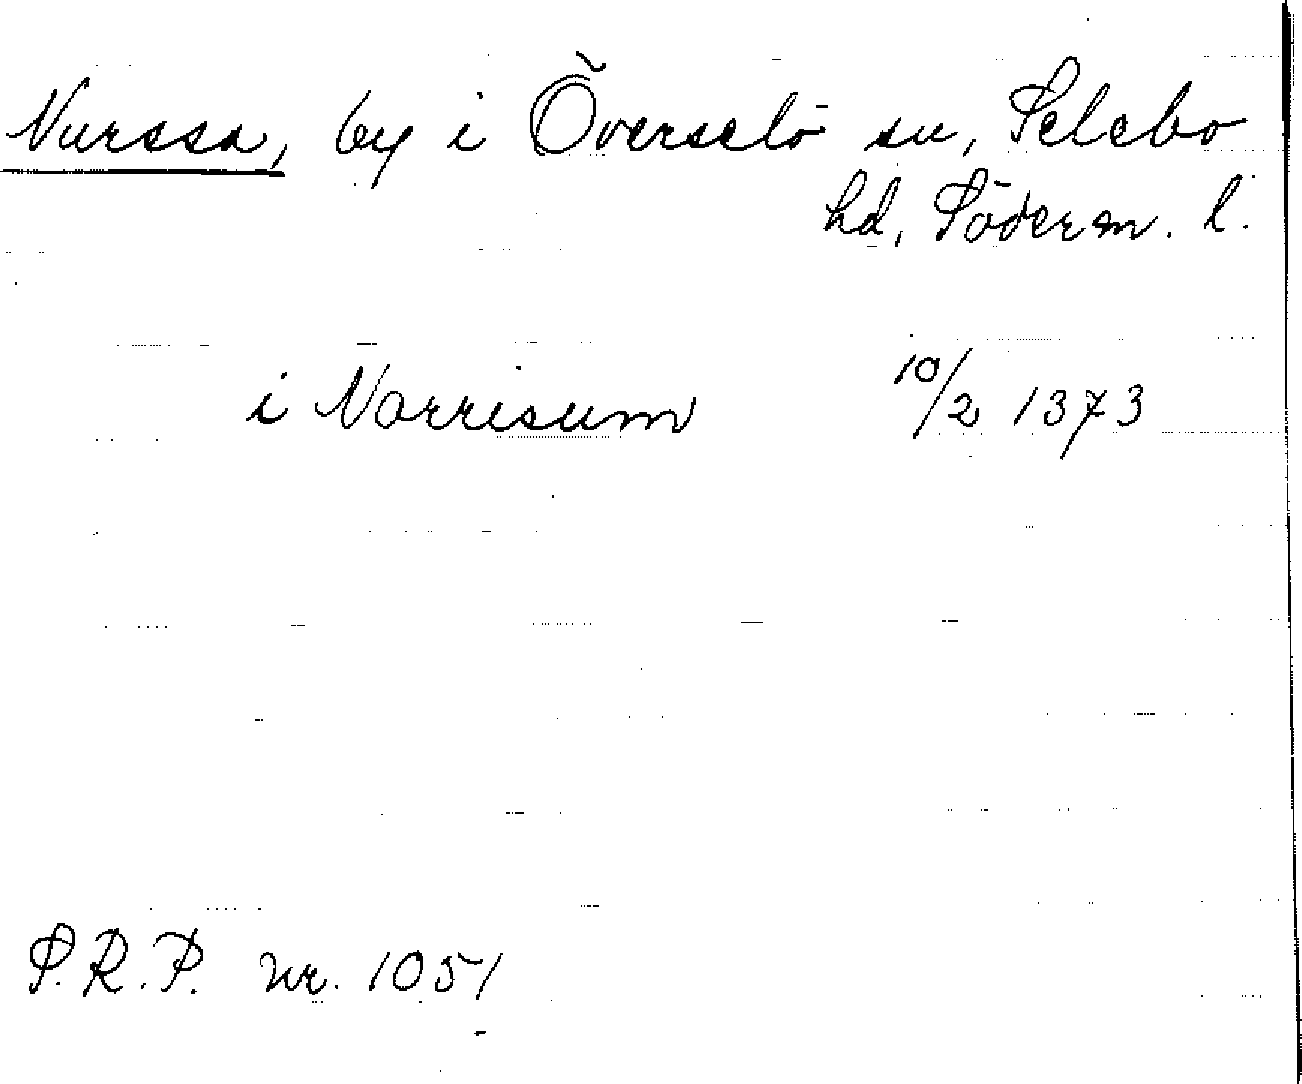 Nurssa, by i Överselö sn, Selebo
hd, Söderm. l.
i Norrisum 10/2 1373
S.R.P. nr. 1051